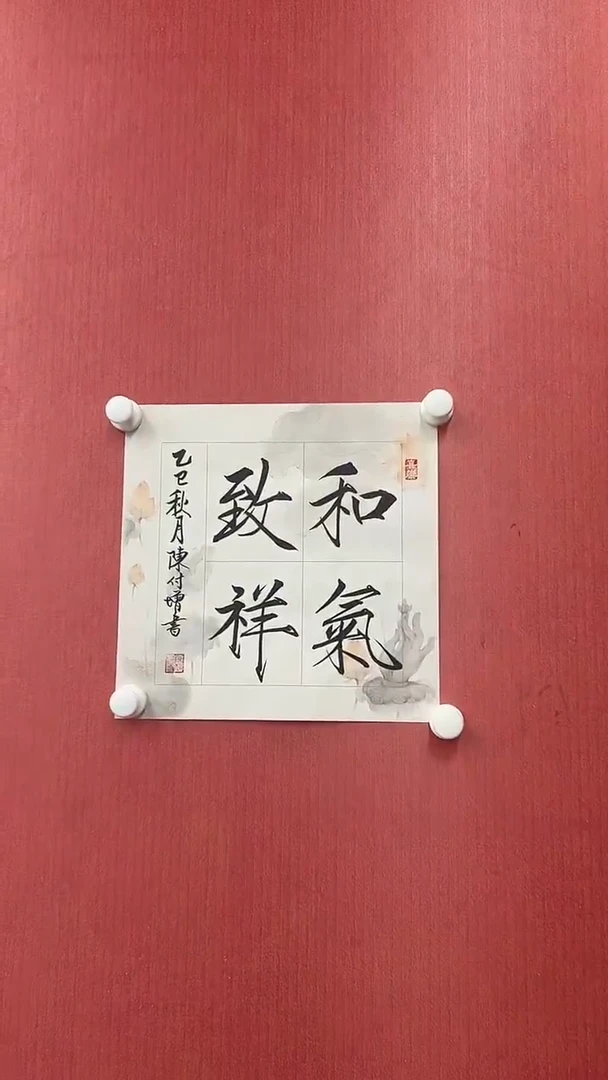 和氣
致祥
乙巳秋月陳付增書